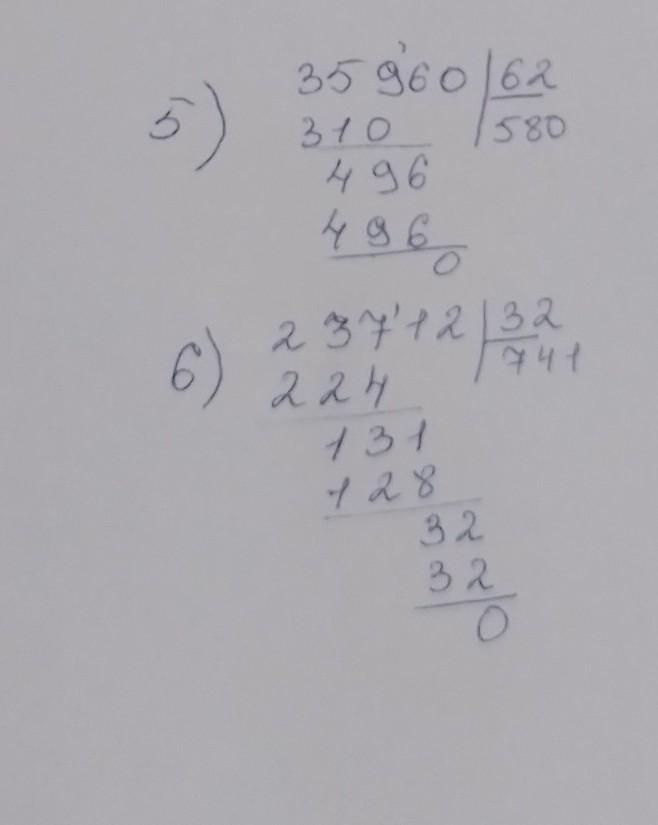 5) 35 960 | 62
310 | 580
496
496
0
6) 237'12 | 32
224 | 741
131
128
32
32
0